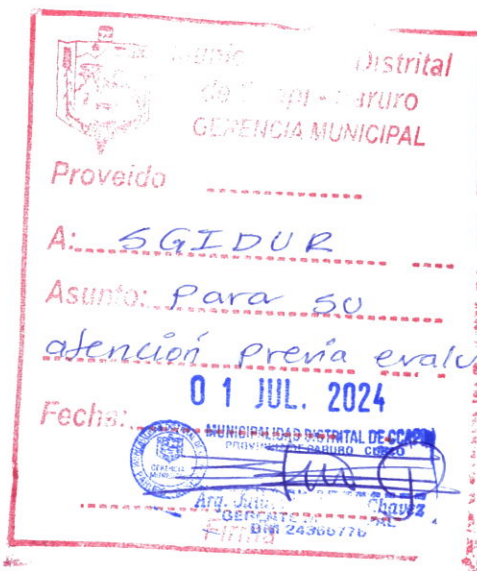 Distrital
GERENCIA MUNICIPAL
Proveido
A: SGIDUR
Asunto: Para su
atención previa evalu
01 JUL. 2024
Fecha:
MUNICIPALIDAD DISTRITAL DE CCAPI
PROVINCIA DE PARURO CUSCO
GERENCIA
Arq. Chavez
DNI 24366776
Firma